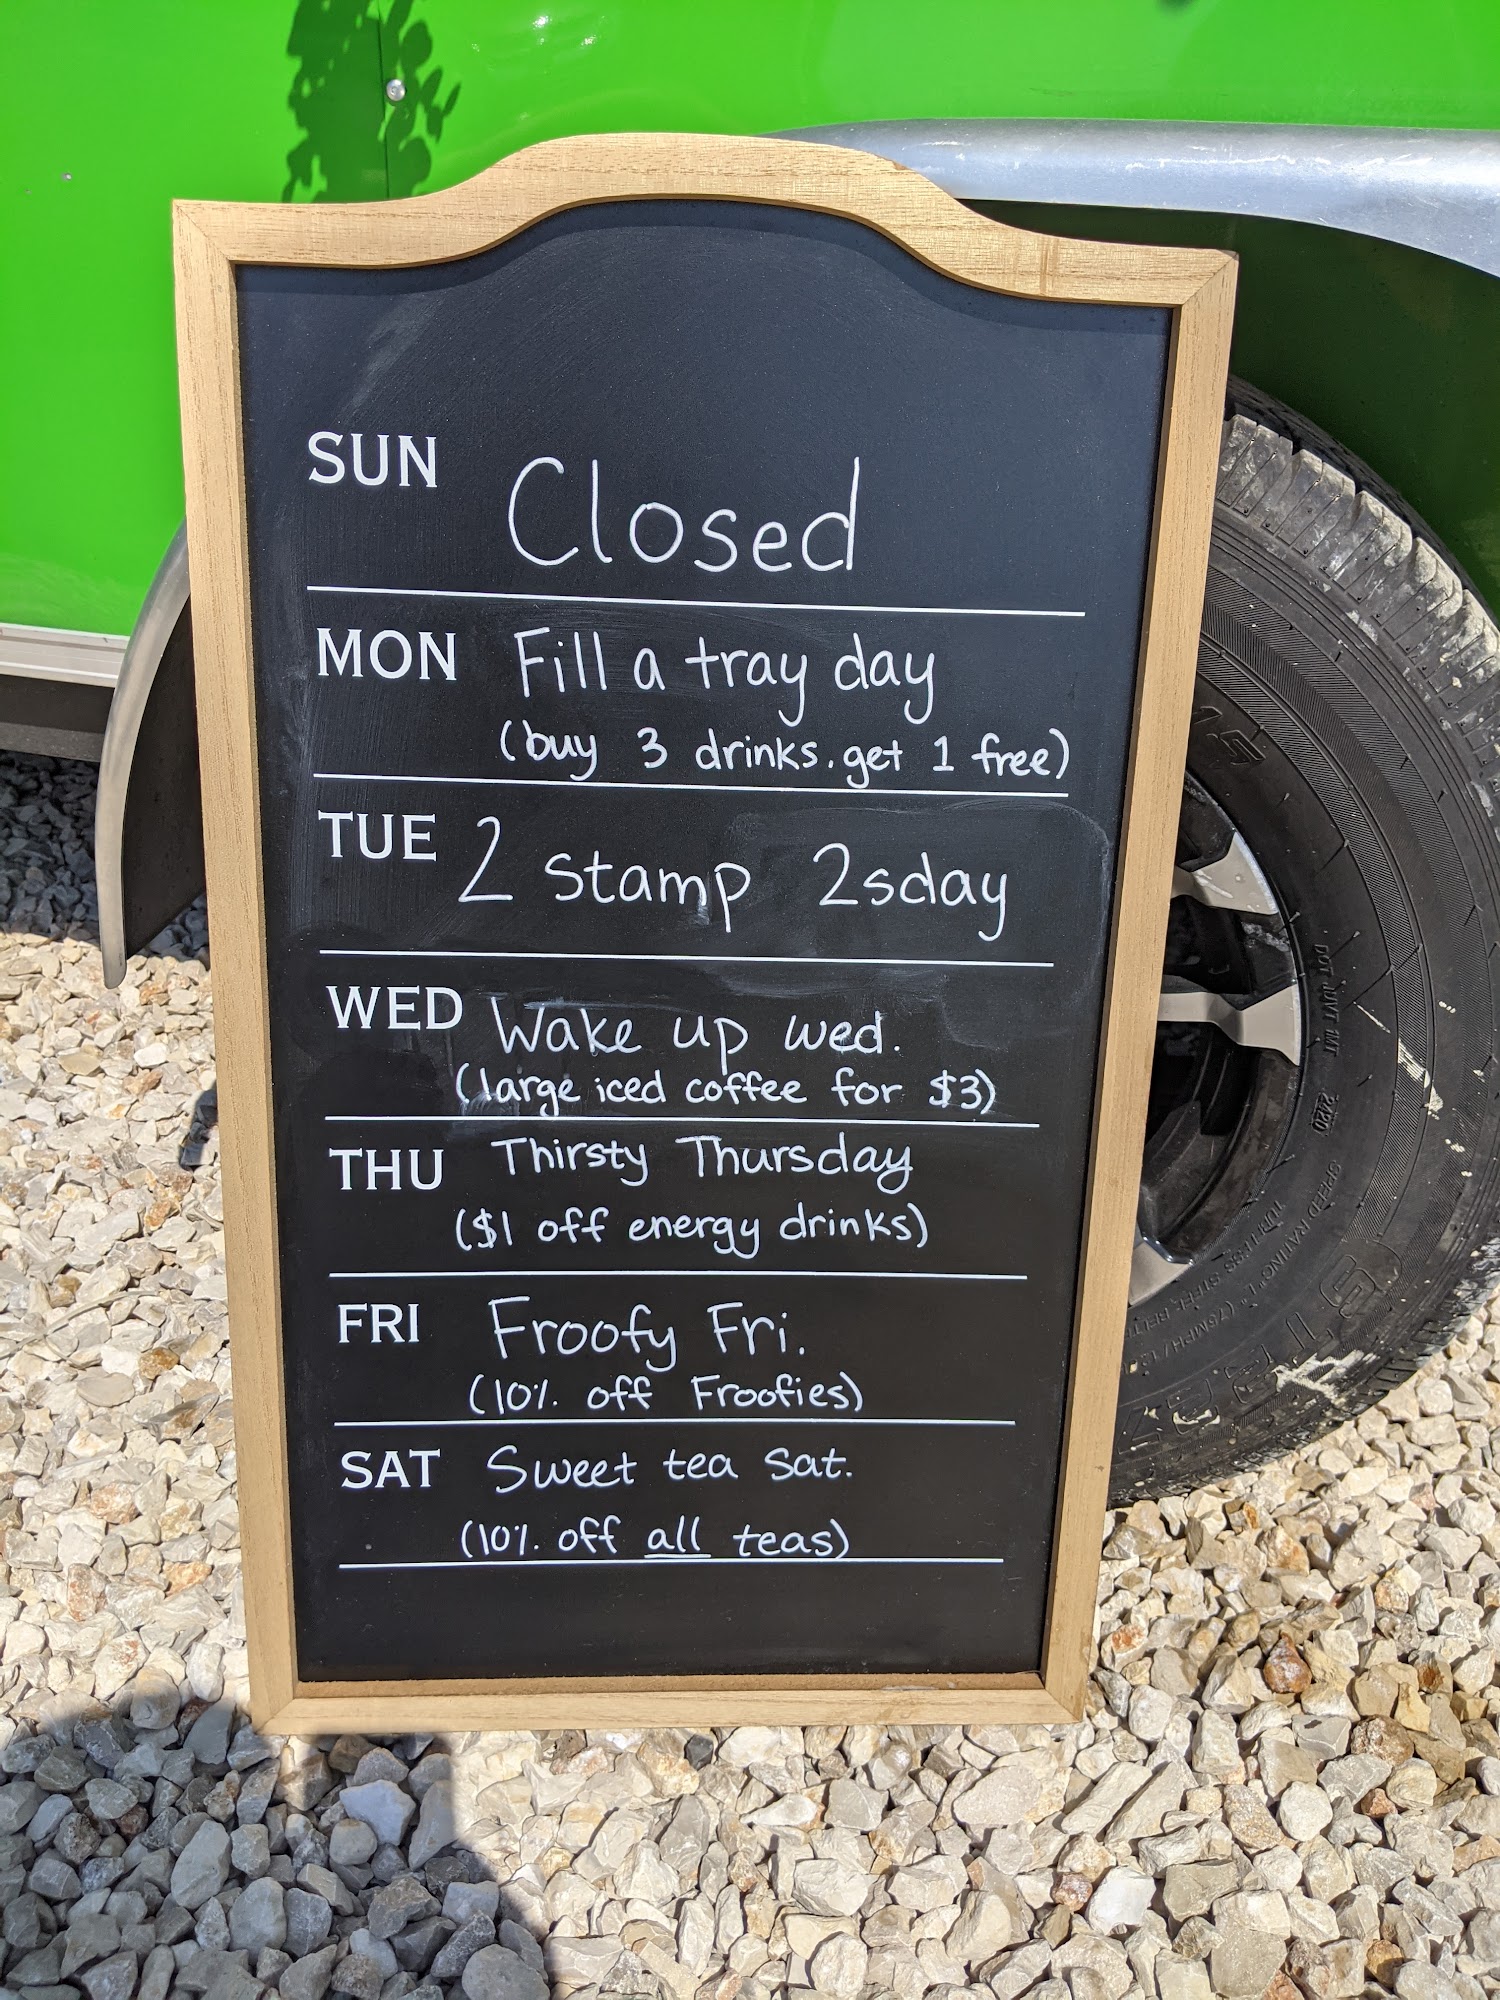 SUN Closed
MON Fill a tray day
(buy 3 drinks. get 1 free)
TUE 2 Stamp 2sday
WED Wake up wed.
(large iced coffee for $3)
THU Thirsty Thursday
($1 off energy drinks)
FRI Froofy Fri.
(10% off Froofies)
SAT Sweet tea Sat.
(10% off all teas)